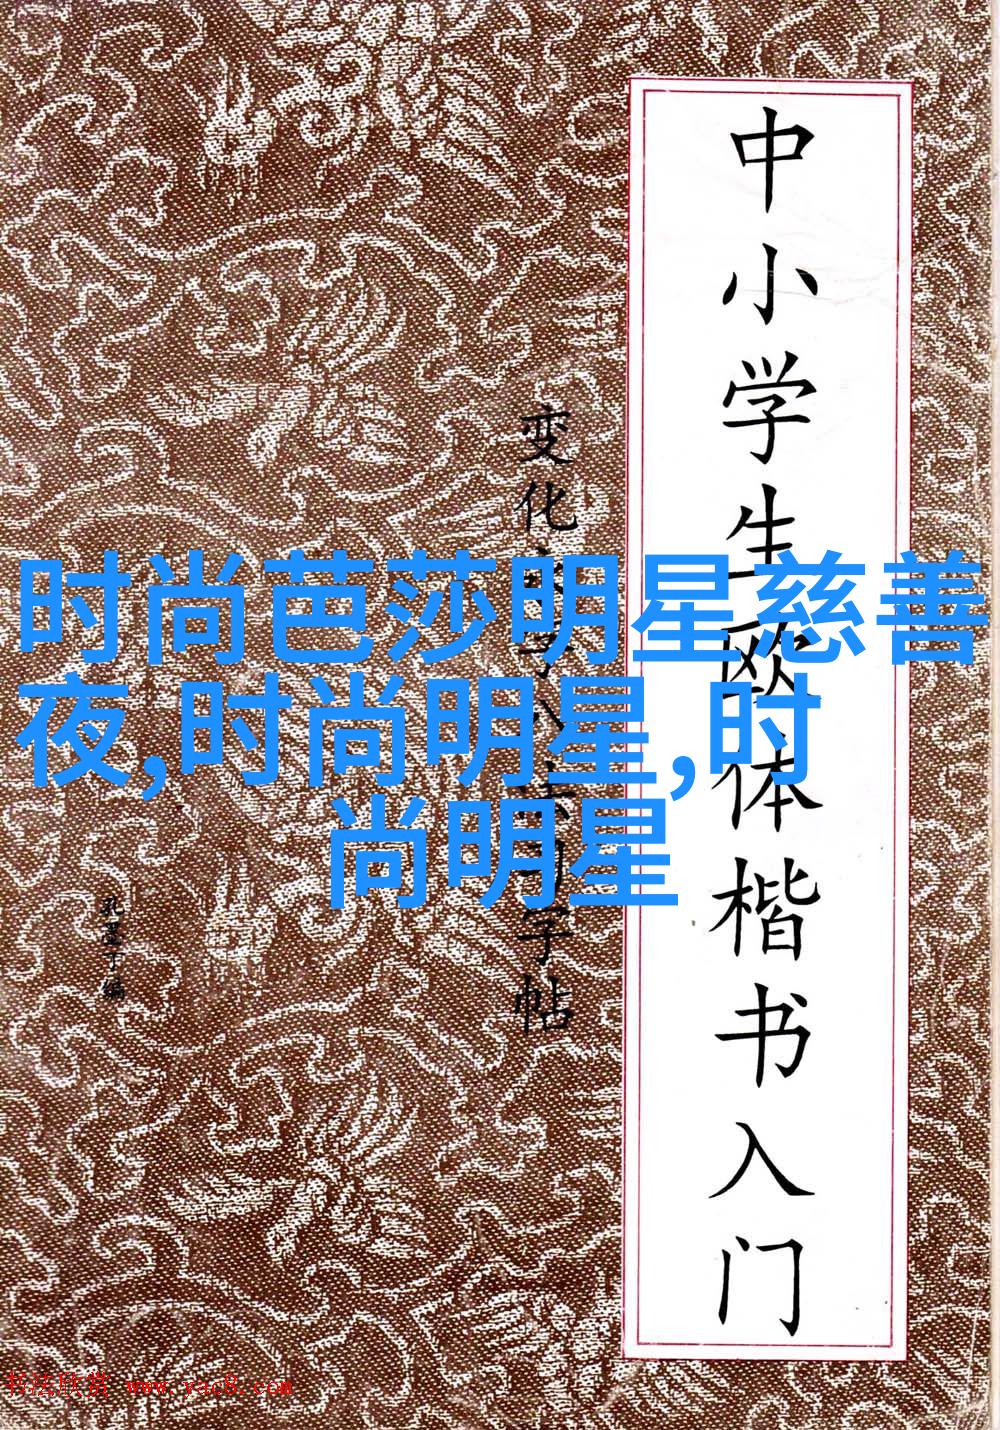 中小学生欧体楷书入门
变化永字八法习字帖
孔墨丁编
时尚芭莎明星慈善
夜,时尚明星,时
尚明星
书法欣赏 www.yac8.com